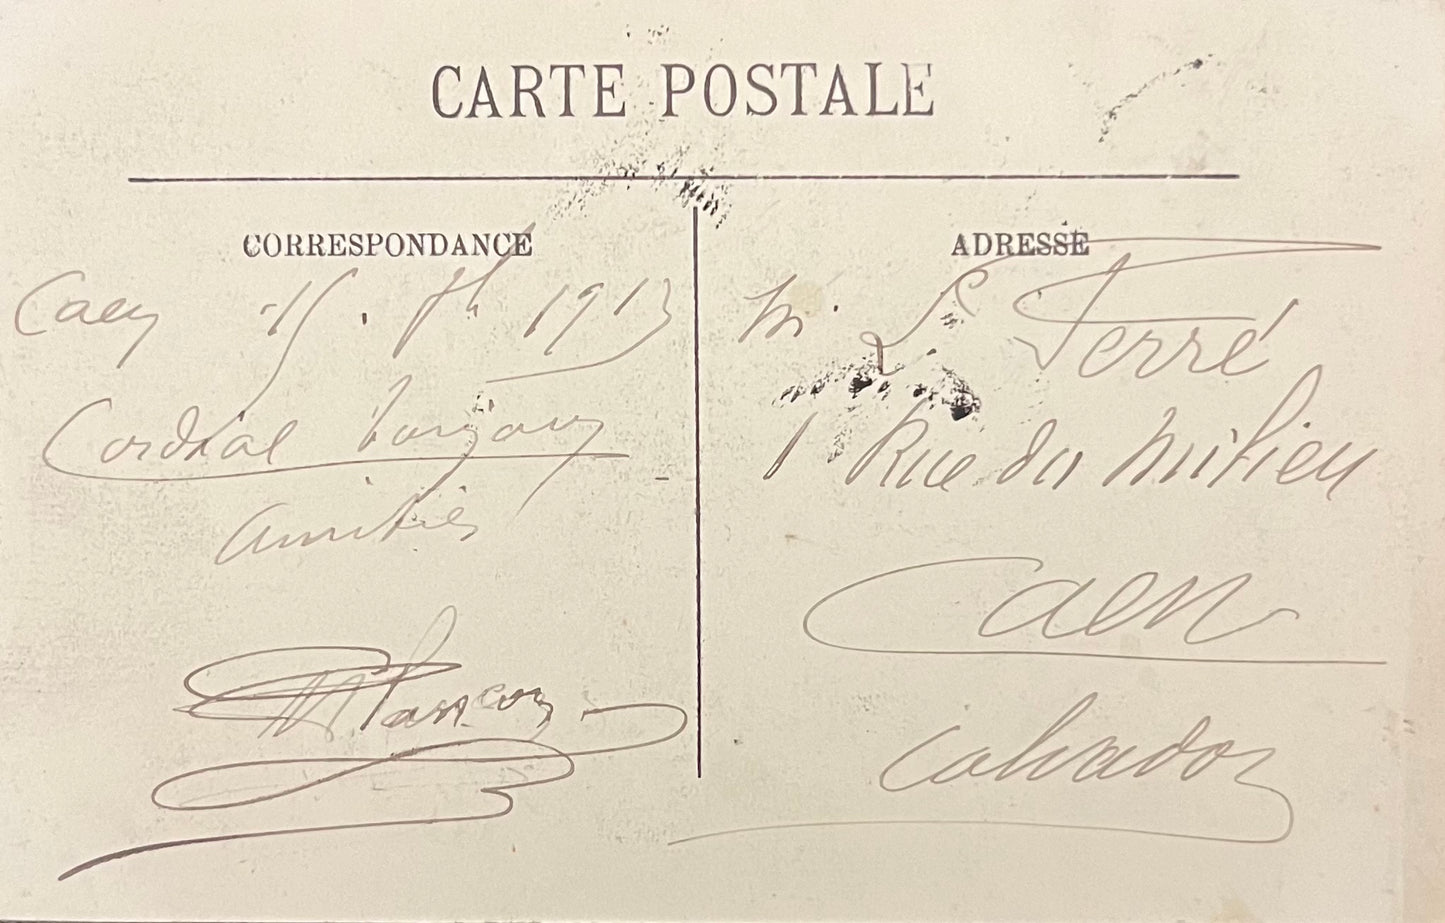 CARTE POSTALE
CORRESPONDANCE
Caen 1913
Cordial bonjour
amitiés
ADRESSE
M. L Ferré
1 Rue du Milieu
Caen
Calvados